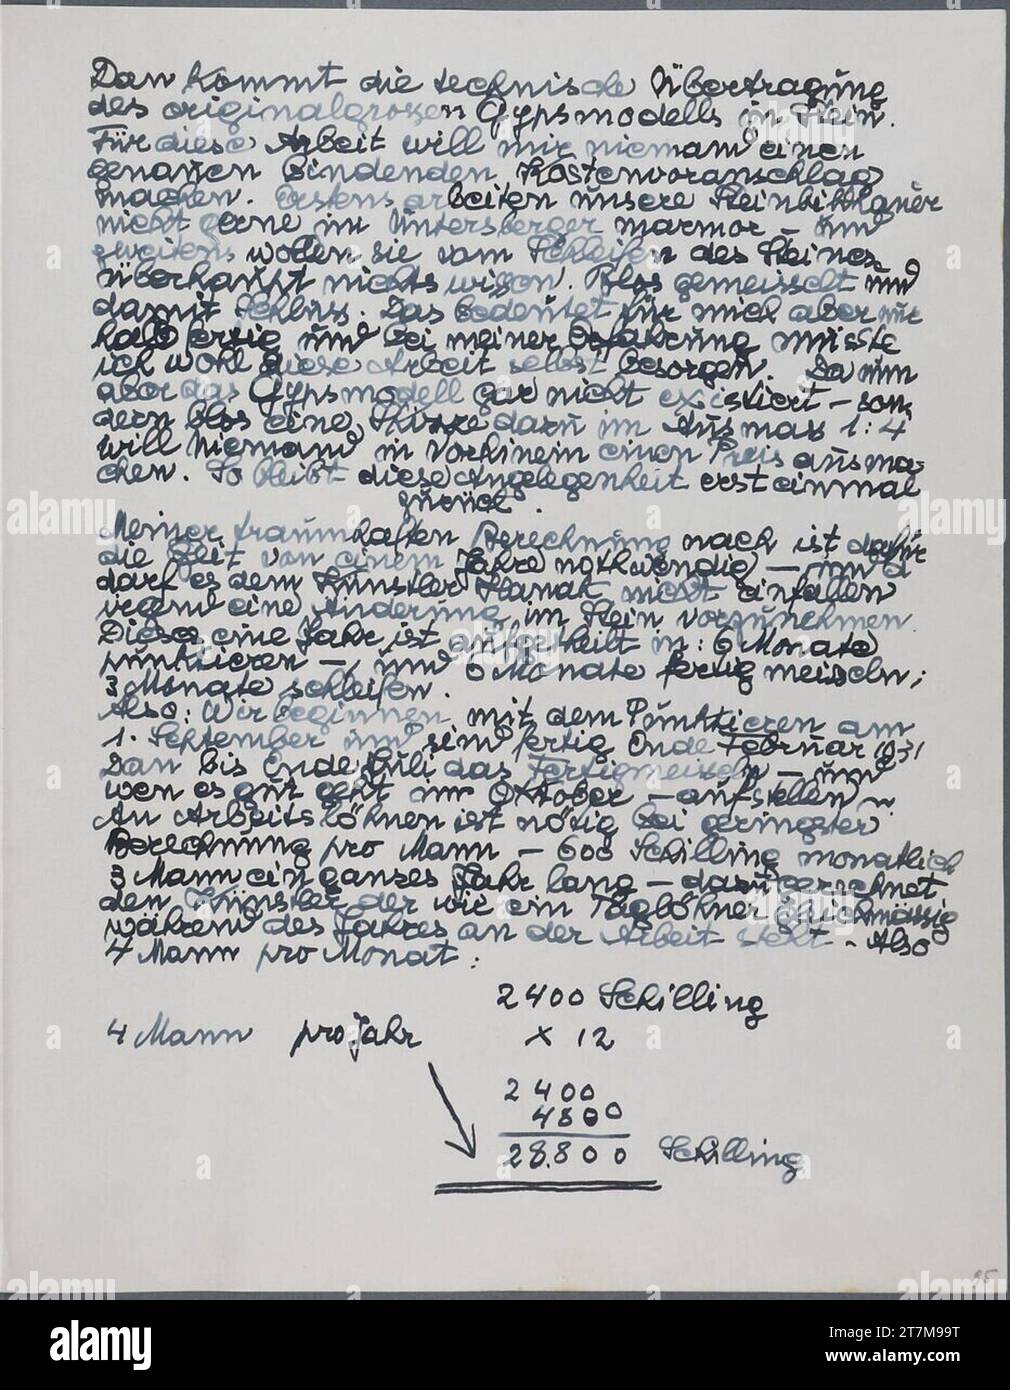 Dan kommt die technische Übertragung
des originalgrossen Gypsmodells in Stein.
Für diese Arbeit will mir niemand einen
genauen bindenden Kostenvoranschlag
machen. Erstens arbeiten unsere Steinbildhauer
nicht gerne im Untersberger marmor – und
zweitens wollen sie vom Schleifen des Steines
überhaupt nichts wissen. Blos gemeisselt und
damit Schluss. Das bedeutet für mich aber nur
halb fertig und bei meiner Erfahrung müsste
ich wohl diese Arbeit selbst besorgen. Da nun
aber das Gypsmodell gar nicht existiert – son
dern blos eine Skizze dazu im Ausmass 1:4
will Niemand in Vorhinein einen Preis ausma
chen. So bleibt diese Angelegenheit erst einmal
zurück.
Meiner traumhaften Berechnung nach ist dafür
die Zeit von einem Jahre nothwendig – nun
darf es dem Künstler Hanak nicht einfallen
irgend eine Änderung im Stein vorzunehmen.
Dieses eine Jahr ist aufgetheilt in: 6 Monate
punktieren –, und 6 Monate fertig meiseln;
3 Monate schleifen.
Also: Wir beginnen mit dem Punktieren am
1. September und sind fertig Ende Februar 1931
Dan bis Ende Juli das Fertigmeiseln – und
wen es gut geht im Oktober – aufstellen
An Arbeitslöhnen ist nötig bei geringster
Berechnung pro Mann – 600 Schilling monatlich
3 Mann ein ganzes Jahr lang – dazu gerechnet
den Künstler der wie ein Taglöhner gleichmässig
während des Jahres an der Arbeit steht – Also
4 Mann pro Monat:
2400 Schilling
4 Mann pro Jahr x 12
2400
4800
28.800 Schilling
95
alamy
Image ID: 2T7M99T
www.alamy.com